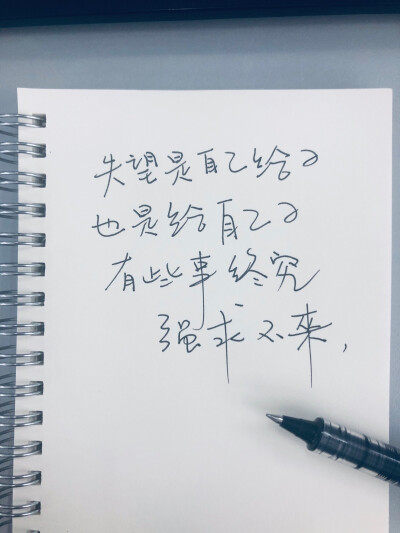 失望是自己给的
也是给自己的
有些事终究
强求不来,